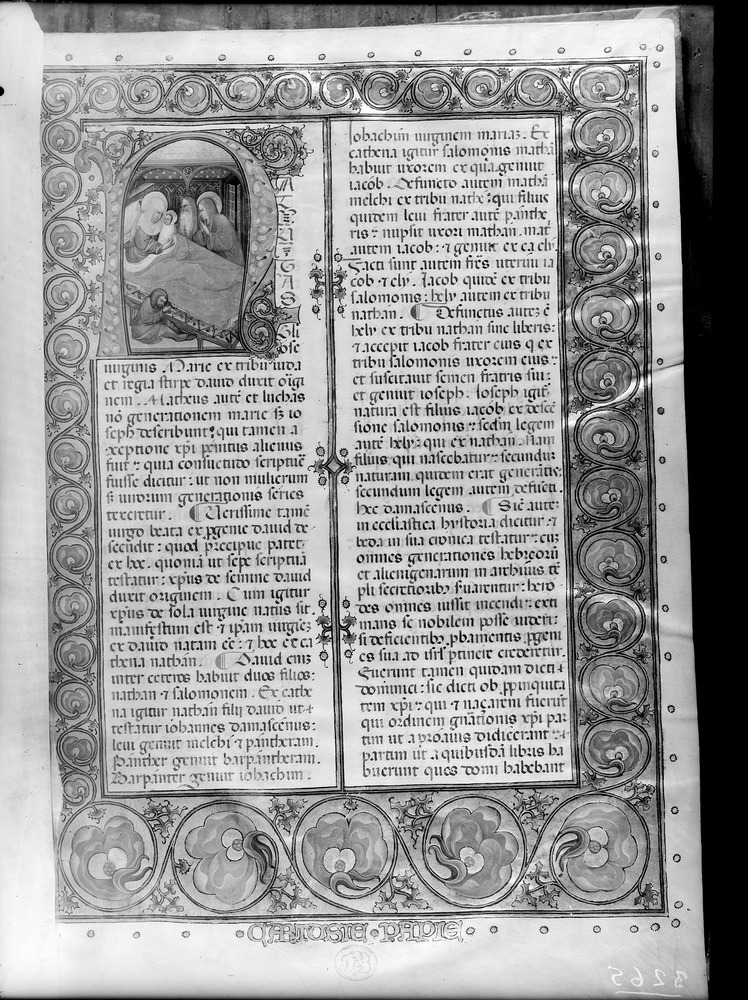 ATI
UI
TAS
Gli
ose
uirginis . Marie ex tribu iuda
et regia stirpe dauid duxit oīgi
nem . Matheus autē et luchas
nō generationem marie s; io
seph describunt: qui tamen a
xceptione xp̄i penitus alienus
fuit & quia consuetudo scripture᷒
fuisse dicitur: ut non mulierum
s; uirorum generationis series
texeretur . ¶ Uerissime tamē
uirgo beata ex ꝓgenie dauid de
scendit: quod precipue patet
ex hoc. quoniā ut sepe scriptura
testatur: xp̄us de semine dauid
duxit originem . Cum igitur
xp̄us de sola uirgine natus sit.
manifestum est ⁊ ip̄am uirgiez
ex dauid natam eē: ⁊ hoc ex ca
thena nathan . ¶ Dauid enī
inter ceteros habuit duos filios:
nathan ⁊ salomonem . Ex cathe
na igitur nathan filij dauid ut
testatur iohannes damascenus:
leui genuit melchi ⁊ pantheram.
Panther genuit barpantheram.
Barpanter genuit iohachim .
Iohachim uirginem mariaz. Ex
cathena igitur salomonis mathā
habuit uxorem ex qua genuit
iacob . Defuncto autem mathā
melchi ex tribu nathā: qui filius
quidem leui frater autē panthe
ris ⁊ nupsit uxori mathan. mat̄
autem iacob: ⁊ genuit ex ea ely.
Facti sunt autem frēs uterini ia
cob ⁊ ely. Iacob quidē ex tribu
salomonis: hely autem ex tribu
nathan . ¶ Defunctus autez ē
hely ex tribu nathan sine liberis:
⁊ accepit iacob frater eius q̄ ex
tribu salomonis uxorem eius:
et suscitauit semen fratris sui:
et genuit ioseph. Ioseph igit᷑
natura est filius iacob ex descē
sione salomonis: sedm legem
autē hely: qui ex nathan. Nam
filius qui nascebatur: secundum
naturam quidem erat generātis:
secundum legem autem defūcti.
hec damascenus . ¶ Sic autez
in ecclesiastica hystoria dicitur ⁊
beda in sua cronica testatur: cuz
omnes generationes hebreorū
et alienigenarum in archiuis tē
pli secretioribꝫ seruarentur: hero
des omnes iussit incendi: exti
mans se nobilem posse uideri:
si deficientibꝫ ꝓbamentis ꝓgeni
es sua ad isrl̄ ptinere crederetur.
Fuerunt tamen quidam dicti
dominici: sic dicti ob ꝓpinquita
tem xp̄i: ⁊ qui ⁊ naçareni fuerūt
qui ordinem gnātionis xp̄i par
tim ut a proauis didicerant
partim ut a quibusdā libris ha
buerunt quos domi habebant
CARTUSIE · PAPIE
3265